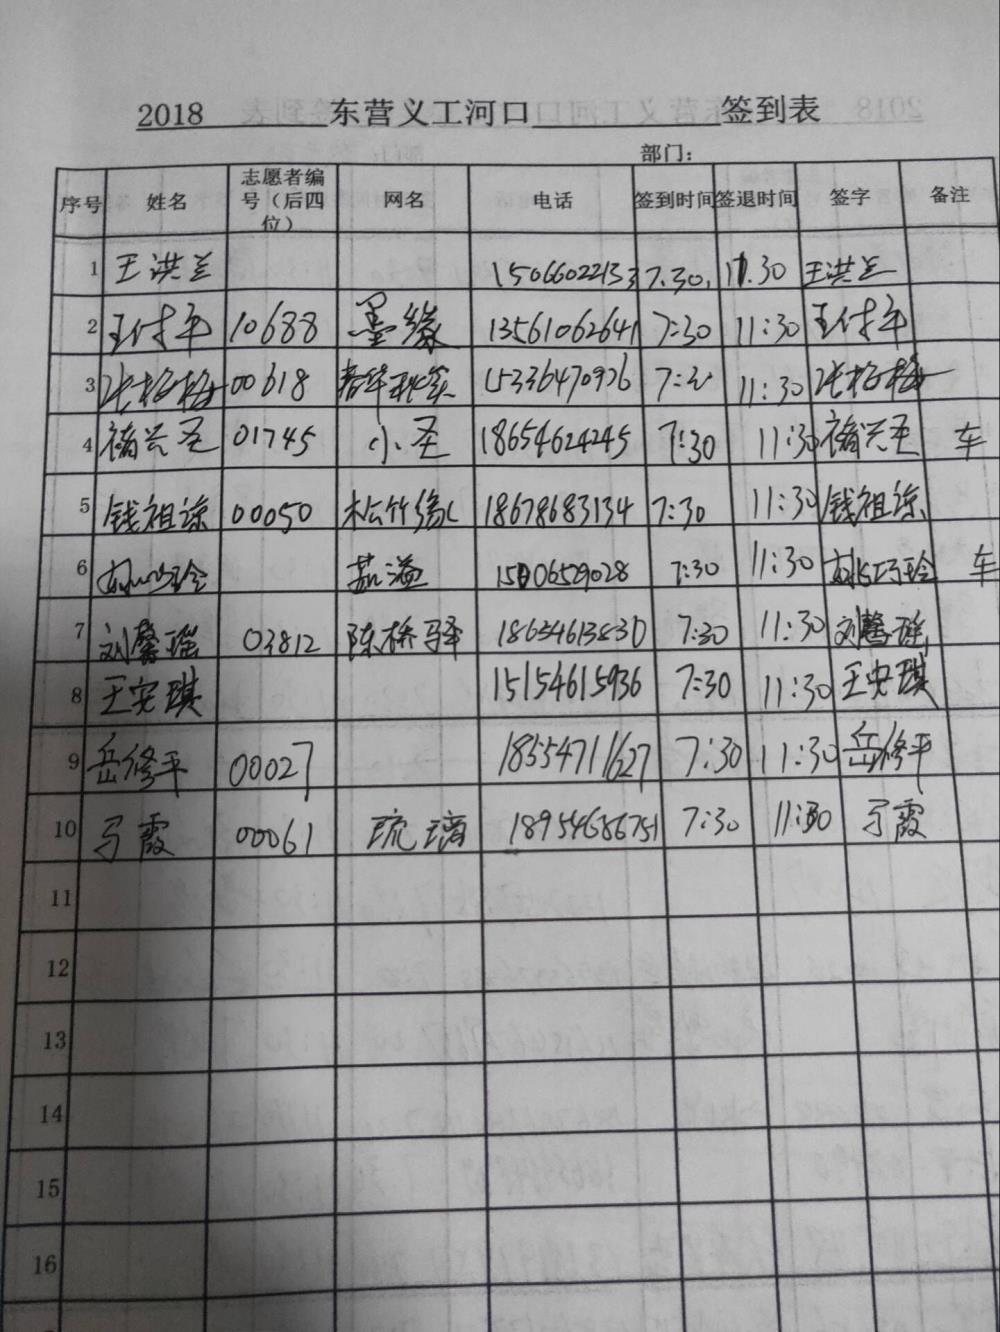 2018 东营义工河口 签到表
部门：
序号 姓名 志愿者编号（后四位） 网名 电话 签到时间 签退时间 签字 备注
1 王洪兰 15066022133 7.30. 11.30 王洪兰
2 王付军 10688 墨缘 13561062641 7:30 11:30 王付军
3 张梅梅 00618 春华秋实 15336470926 11:30 张梅梅
4 褚兴圣 01745 小圣 18654624245 7:30 11:30 褚兴圣 车
5 钱祖谅 00050 松竹缘 18678683134 7:30 11:30 钱祖谅
6 7:30 11:30 车
7 刘馨瑶 03812 陈桥驿 18654613830 7:30 11:30 刘馨瑶
8 王安琪 15154615936 7:30 11:30 王安琪
9 岳修平 00027 18554711627 7:30 11:30 岳修平
10 马霞 00061 琉璃 18954686751 7:30 11:30 马霞
11
12
13
14
15
16